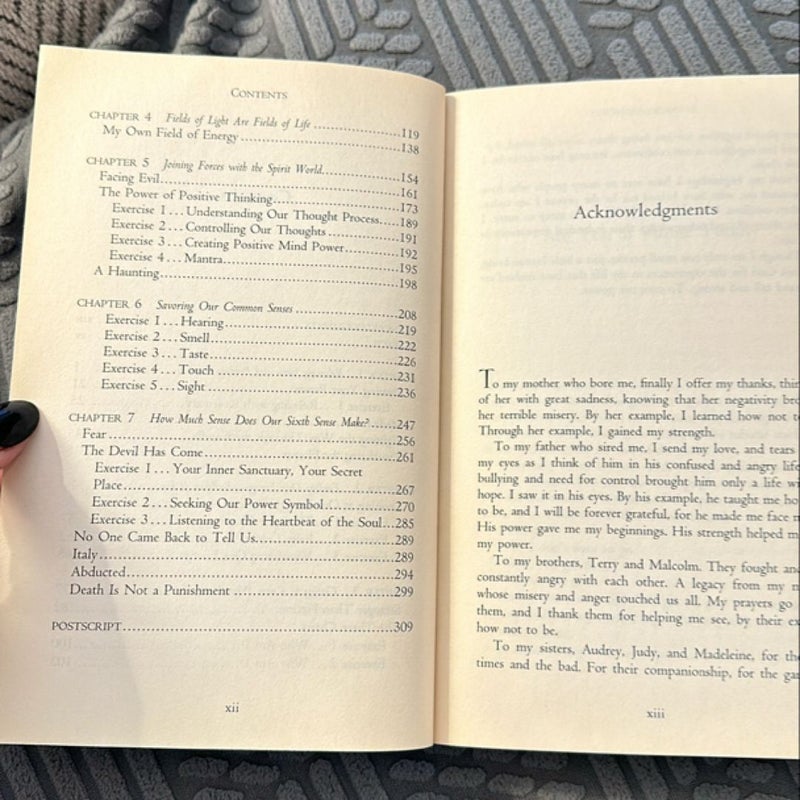 CONTENTS
CHAPTER 4 Fields of Light Are Fields of Life ..................119
My Own Field of Energy..................138
CHAPTER 5 Joining Forces with the Spirit World..................154
Facing Evil..................161
The Power of Positive Thinking..................173
Exercise 1 . . . Understanding Our Thought Process.....189
Exercise 2 . . . Controlling Our Thoughts ..................191
Exercise 3 . . . Creating Positive Mind Power..................192
Exercise 4 . . . Mantra..................195
A Haunting..................198
CHAPTER 6 Savoring Our Common Senses ..................208
Exercise 1 . . . Hearing..................219
Exercise 2 . . . Smell..................222
Exercise 3 . . . Taste..................226
Exercise 4 . . . Touch ..................231
Exercise 5 . . . Sight ..................236
CHAPTER 7 How Much Sense Does Our Sixth Sense Make?......247
Fear..................256
The Devil Has Come..................261
Exercise 1 . . . Your Inner Sanctuary, Your Secret
Place..................267
Exercise 2 . . . Seeking Our Power Symbol..................270
Exercise 3 . . . Listening to the Heartbeat of the Soul...285
No One Came Back to Tell Us..................289
Italy..................289
Abducted..................294
Death Is Not a Punishment ..................299
POSTSCRIPT..................309
xii
Acknowledgments
To my mother who bore me, finally I offer my thanks,
of her with great sadness, knowing that her negativity
her terrible misery. By her example, I learned how not
Through her example, I gained my strength.
To my father who sired me, I send my love, and tears
my eyes as I think of him in his confused and angry
bullying and need for control brought him only a life
hope. I saw it in his eyes. By his example, he taught me
to be, and I will be forever grateful, for he made me face
His power gave me my beginnings. His strength helped
my power.
To my brothers, Terry and Malcolm. They fought
constantly angry with each other. A legacy from my
whose misery and anger touched us all. My prayers go
them, and I thank them for helping me see, by their
how not to be.
To my sisters, Audrey, Judy, and Madeleine, for
times and the bad. For their companionship, for the
xiii